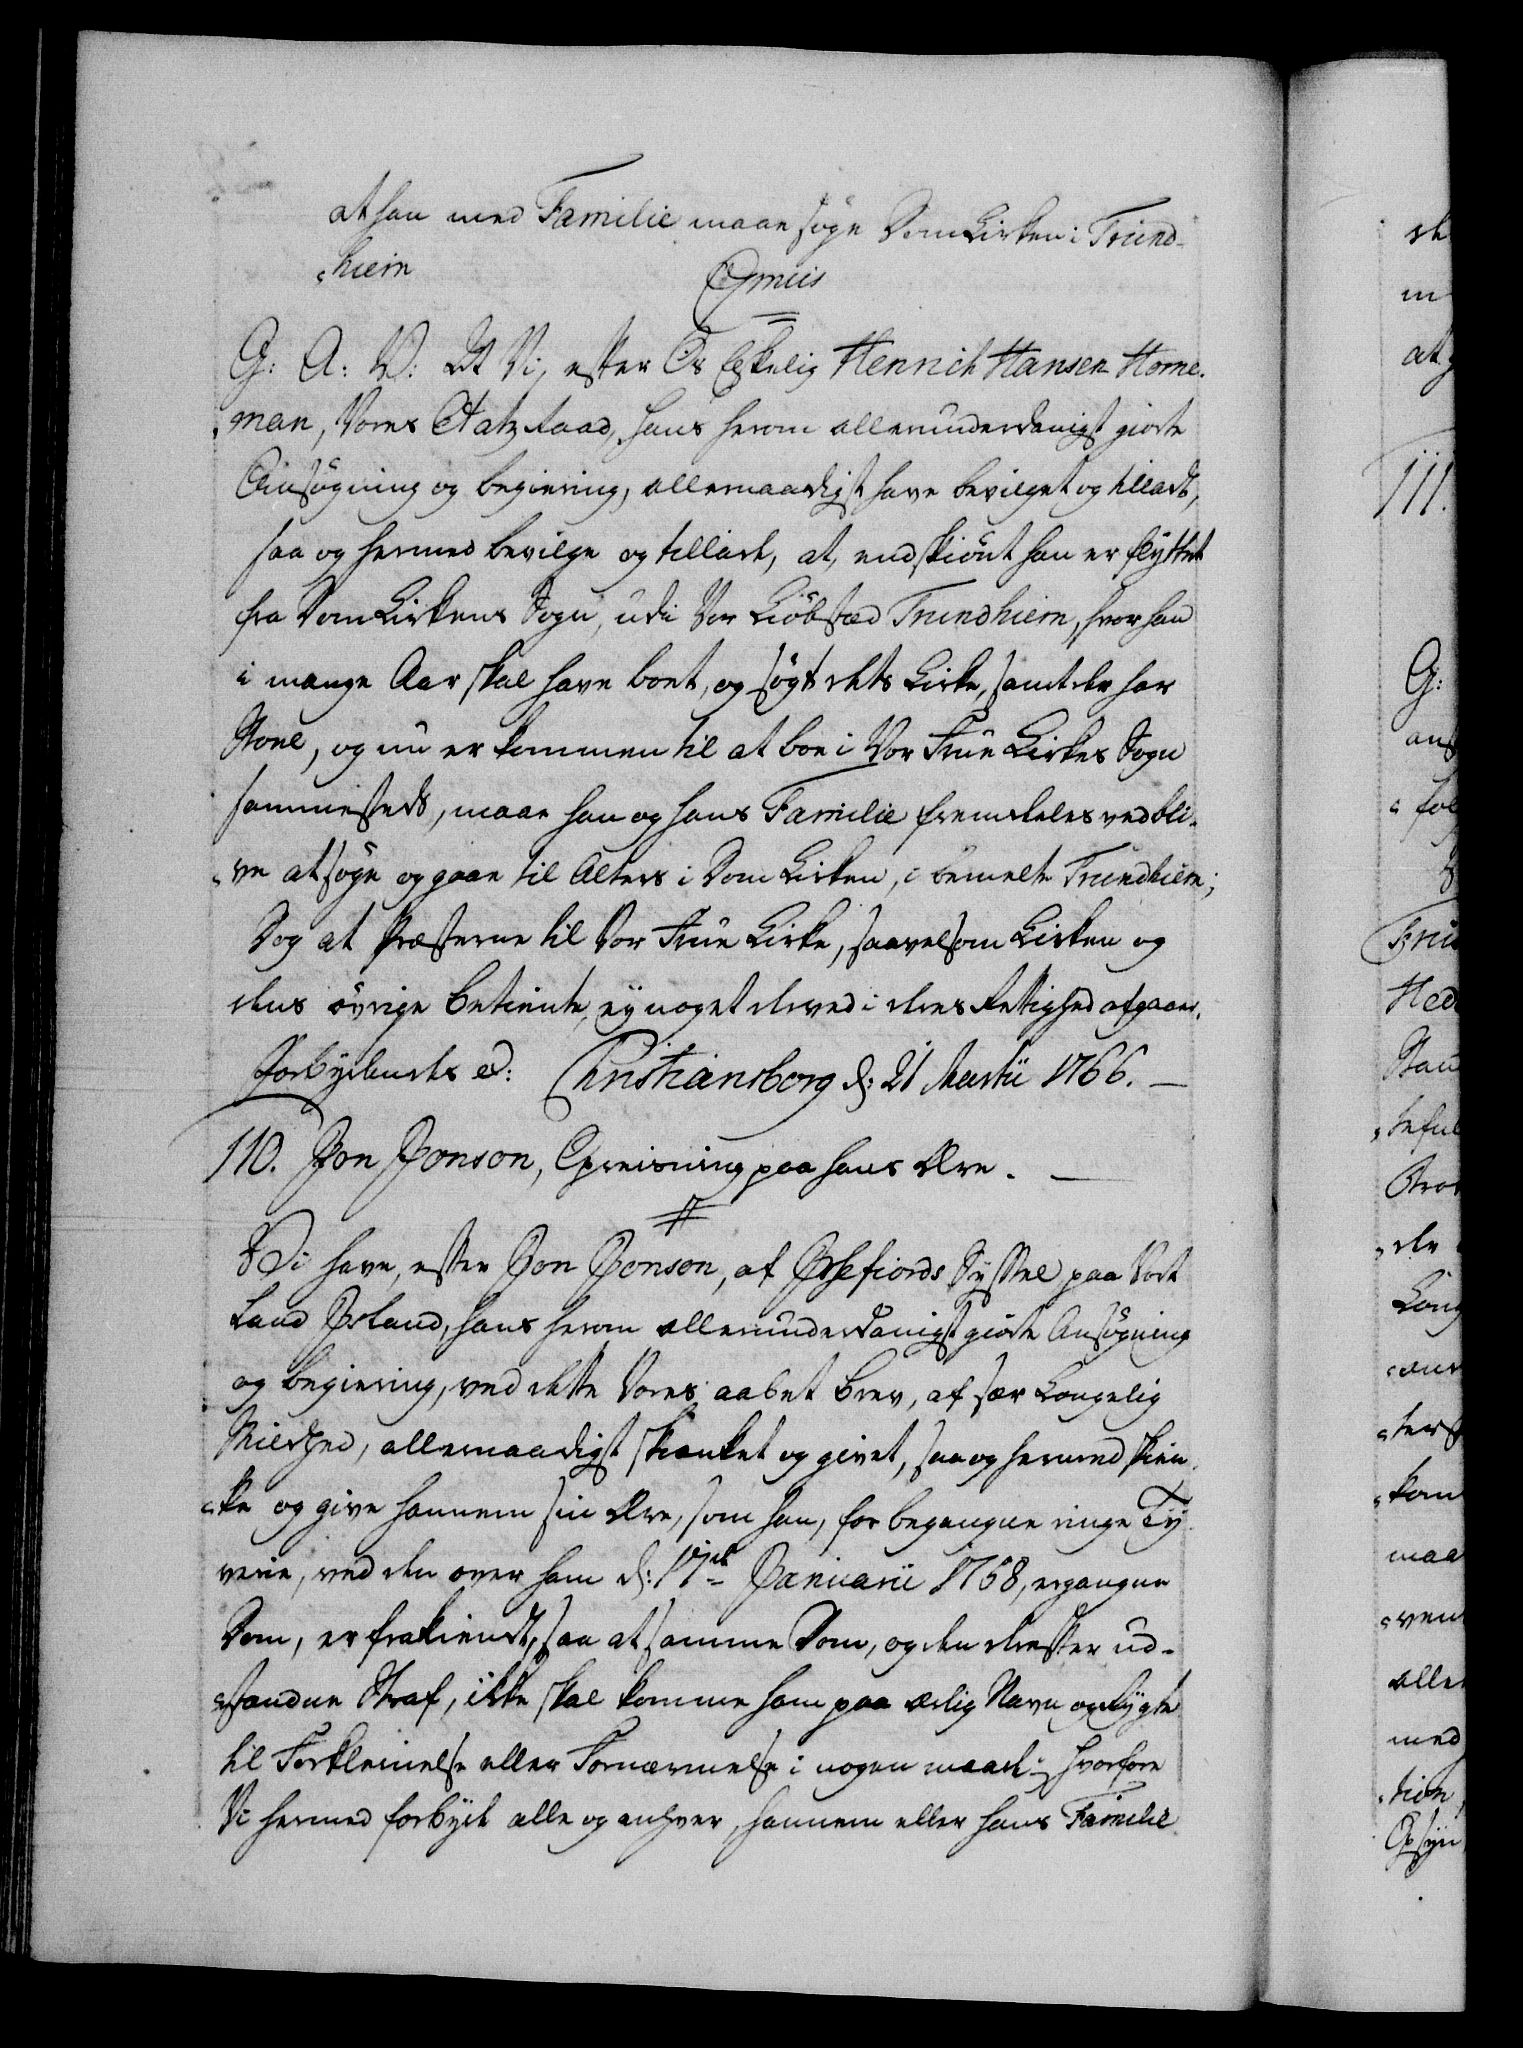 at han med Familie maae søge Dom Kirken i Trund-
hiem
Gratis
G: A: V: At Vi, efter Os Elskelig Henrich Hansen Horne-
man, Vores Etatz Raad, hans herom allerunderdanigst giorte
Ansøgning og begiering, allernaadigst have bevilget og tilladt,
saa og hermed bevilge og tillade, at, endskiønt han er flyttet
fra Dom Kirkens Sogn, udi Vor Kiøbsted Trundhiem, hvor han
i mange Aar skal have boet, og søgt dets Kirke, samt der har
Stoel, og nu er kommen til at boe i Vor Frue Kirkes Sogn
sammesteds, maae han og hans Familie fremdeeles vedbli-
ve at søge og gaae til Alters i Dom Kirken, i bemelte Trundhiem;
Dog at Præsterne til Vor Frue Kirke, saavelsom Kirken og
dens øvrige Betiente, ey noget derved i deres Rettighed afgaaer.
Forbydendes etc: Christiansborg d: 21 Martii 1766.
110. Jon Jonson, Opreisning paa hans Ære.
Vi have, efter Jon Jonson, af Isefiords Syssel paa Vort
Land Island, hans herom allerunderdanigst giorte Ansøgning
og begiering, ved dette Vores aabet brev, af sær Kongelig
Mildhed, allernaadigst skienket og givet, saa og hermed skien-
ke og give hannem sin Ære, som han, for begangne ringe Ty-
verie, ved den over ham d: 17de Januarii 1758, ergangne
Dom, er frakiendt, saa at samme Dom, og den derefter ud-
standne Straf, ikke skal komme ham paa ærlig Navn og Rygte
til Forkleinelse eller Fornærmelse i nogen maade; Hvorfore
Vi hermed forbyde alle og enhver, hannem eller hans Familie